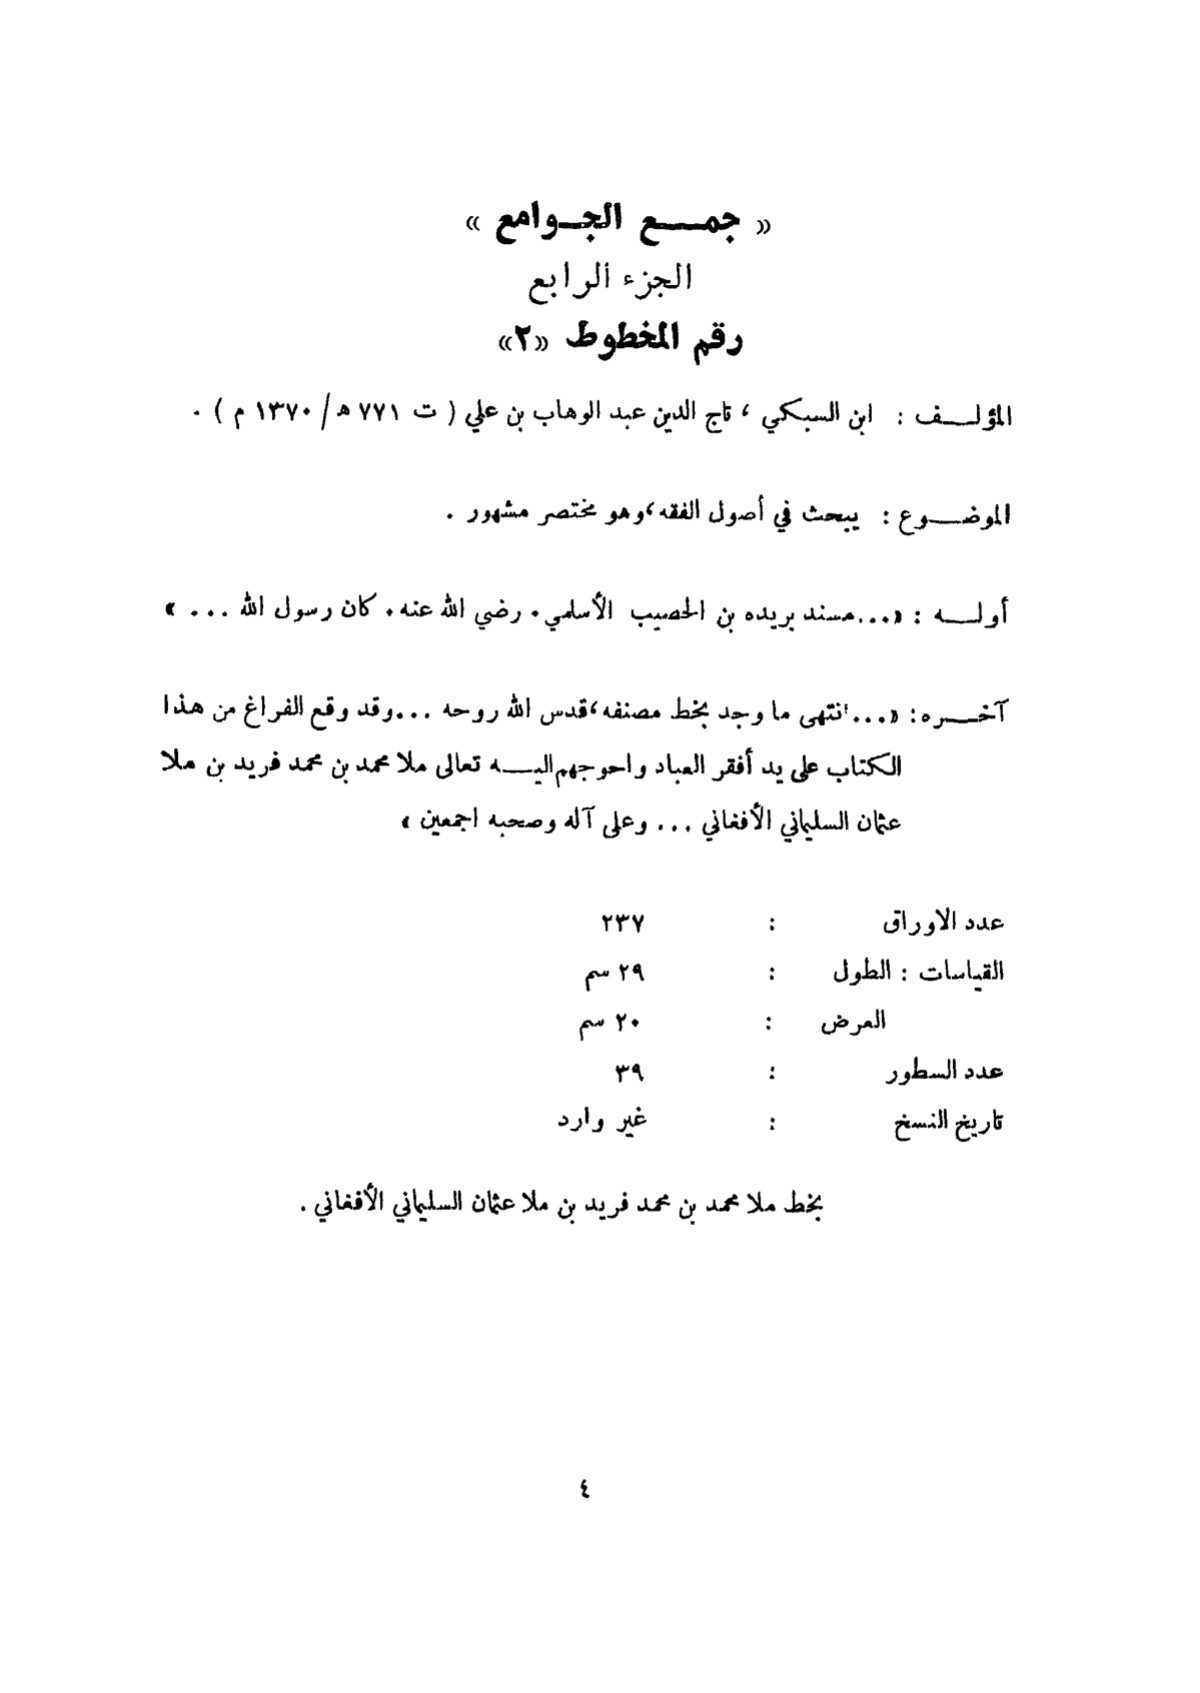 « جمـــع الجــوامع »
الجزء الرابع
رقم المخطوط «٢»
المؤلـــف : ابن السبكي ، تاج الدين عبد الوهاب بن علي ( ت ٧٧١ ه / ١٣٧٠ م ) .
الموضـــوع : يبحث في أصول الفقه،وهو مختصر مشهور .
أولـــه : «...مسند بريده بن الحصيب الأسلمي . رضي الله عنه . كان رسول الله ... »
آخـــره: «...انتهى ما وجد بخط مصنفه،قدس الله روحه ...وقد وقع الفراغ من هذا
الكتاب على يد أفقر العباد واحوجهم اليـــه تعالى ملا محمد بن محمد فريد بن ملا
عثمان السليماني الأفغاني ... وعلى آله وصحبه اجمعين »
عدد الاوراق : ٢٣٧
القياسات : الطول : ٢٩ سم
العرض : ٢٠ سم
عدد السطور : ٣٩
تاريخ النسخ : غير وارد
بخط ملا محمد بن محمد فريد بن ملا عثمان السليماني الأفغاني .
٤